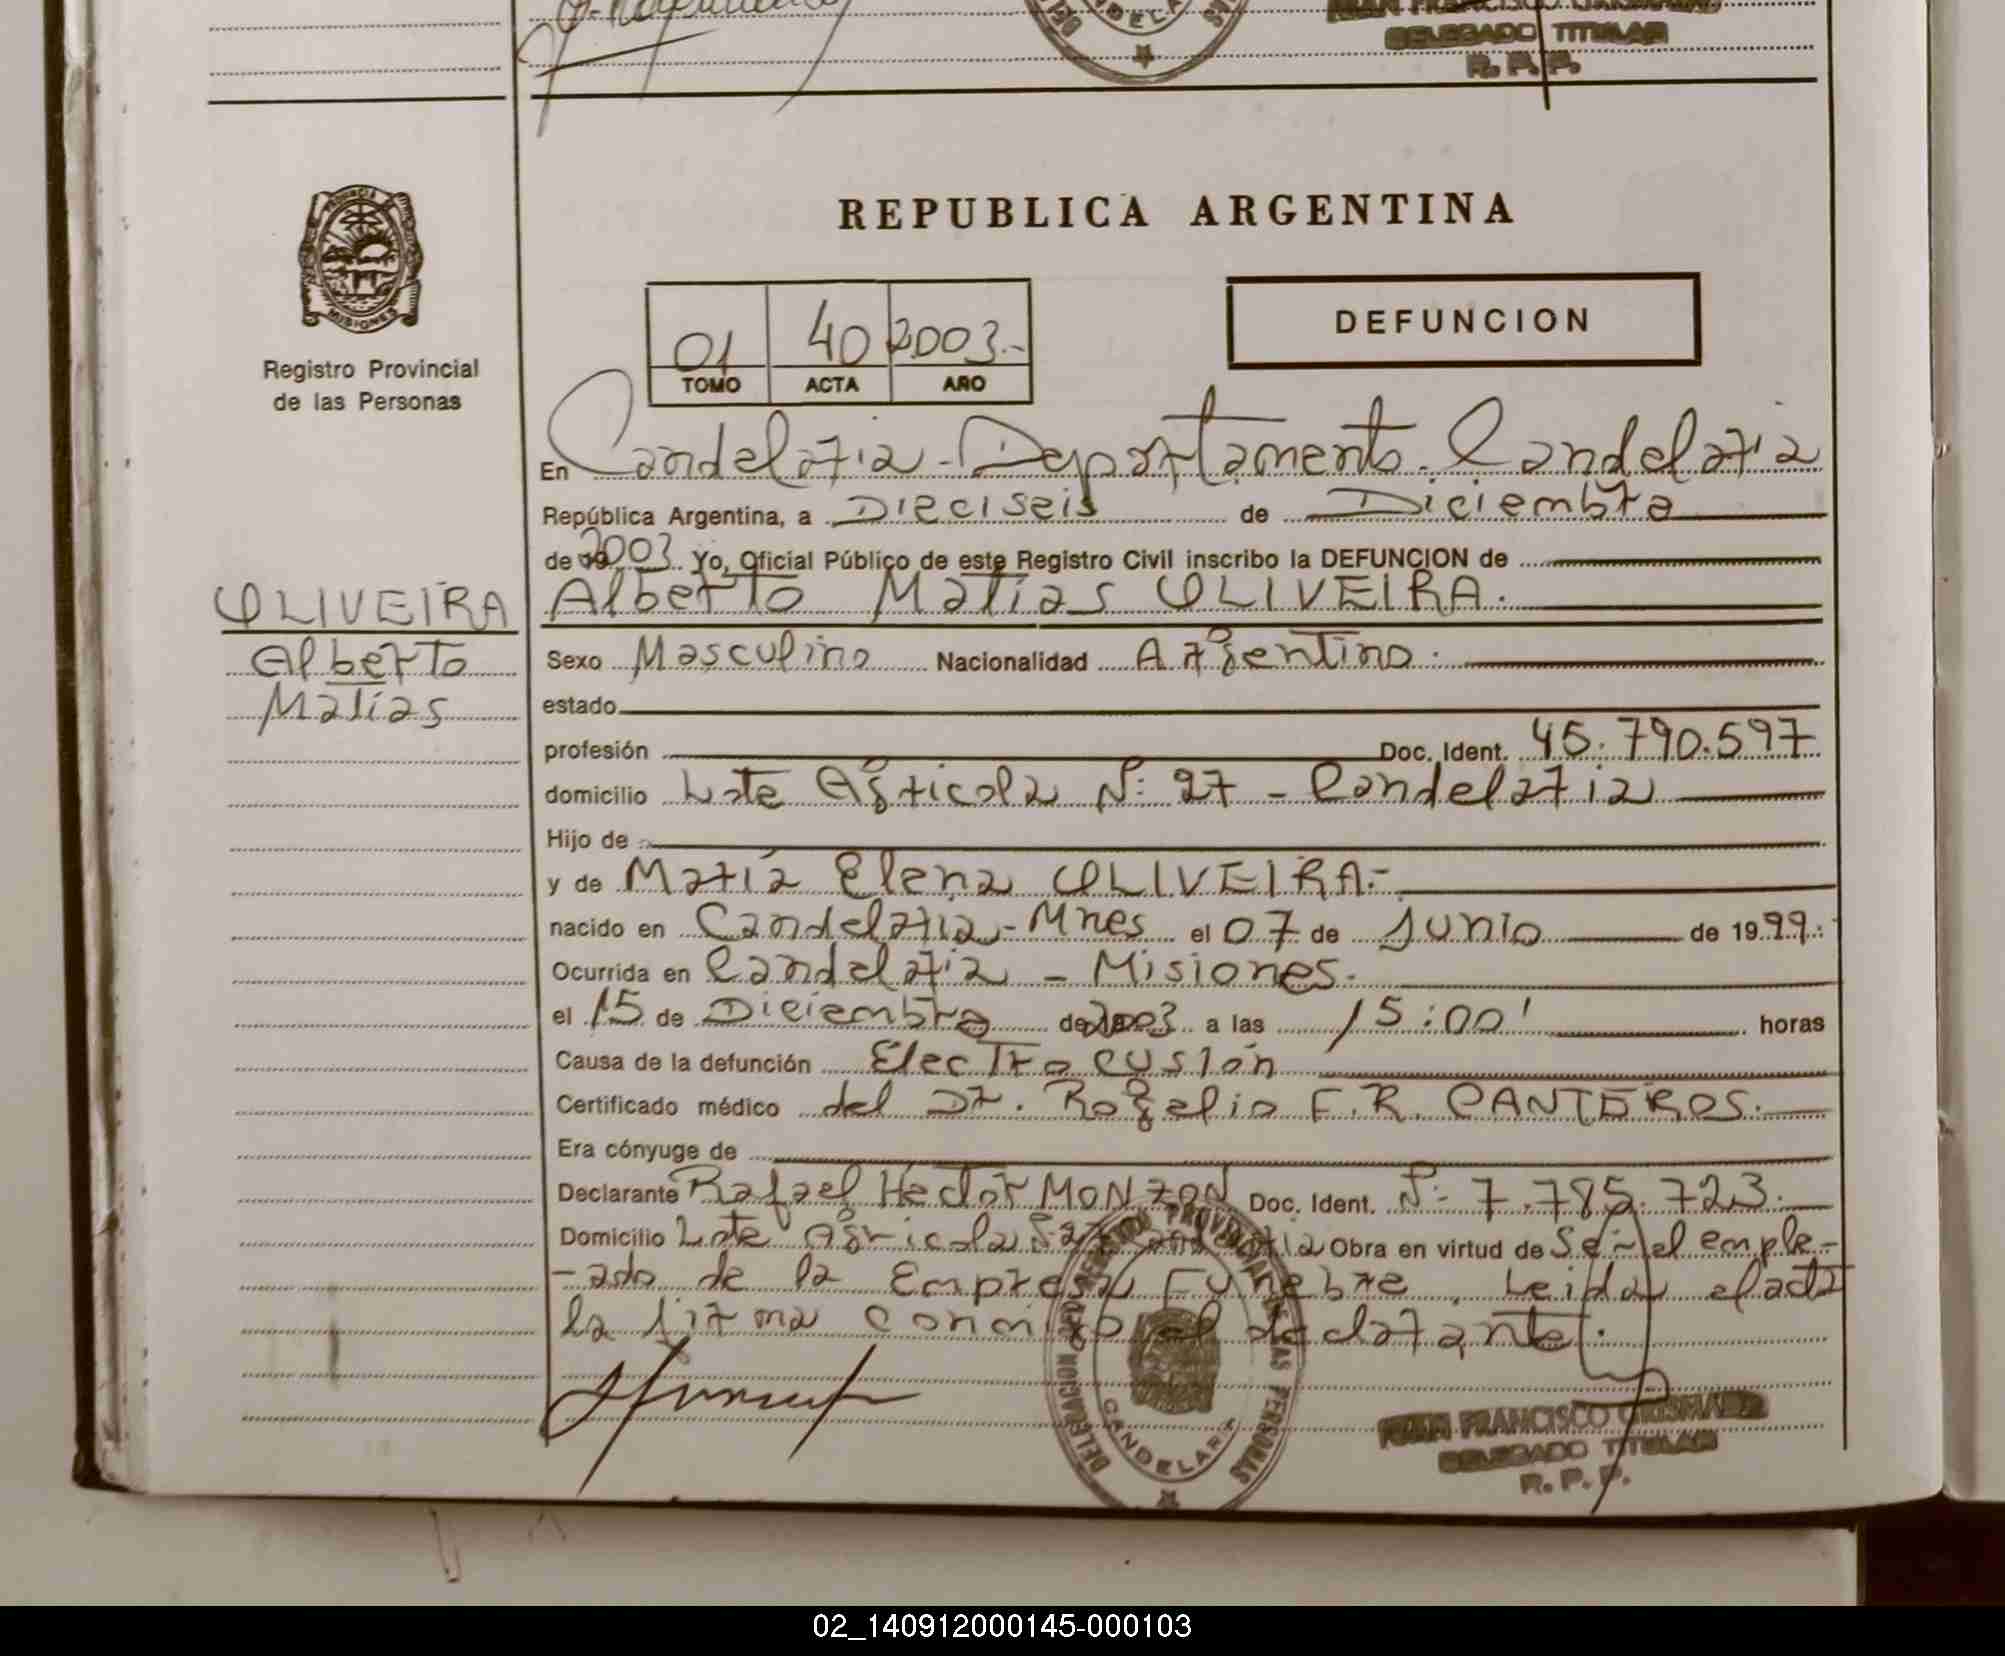 DELEGADO TITULAR
R. P. P.
PROVINCIA
MISIONES
Registro Provincial
de las Personas
REPUBLICA ARGENTINA
01 40 2003.-
TOMO ACTA AÑO
DEFUNCION
En Candelaria - Departamento Candelaria
República Argentina, a Dieciseis de Diciembre
de 2003 Yo, Oficial Público de este Registro Civil inscribo la DEFUNCION de
OLIVEIRA
Alberto
Matías
Alberto Matías OLIVEIRA.
Sexo Masculino Nacionalidad Argentino.
estado
profesión Doc. Ident. 45.790.597
domicilio Lote Agricola Nº: 27 - Candelaria
Hijo de
y de María Elena OLIVEIRA.-
nacido en Candelaria - Mnes el 07 de Junio de 1999.
Ocurrida en Candelaria - Misiones.
el 15 de Diciembre de 2003 a las 15:00' horas
Causa de la defunción Electrocusión
Certificado médico del Dr. Rogelio F.R. CANTEROS.
Era cónyuge de
Declarante Rafael Hector MONZON Doc. Ident. Nº: 7.785.723.
Domicilio Lote Agricola Obra en virtud de Ser el emple-
-ado de la Empresa Funebre. Leida el acta
la firma conmigo el declarante.
DELEGACION
REGISTRO PROVINCIAL DE LAS PERSONAS
CANDELARIA
JUAN FRANCISCO
DELEGADO TITULAR
R. P. P.
02_140912000145-000103